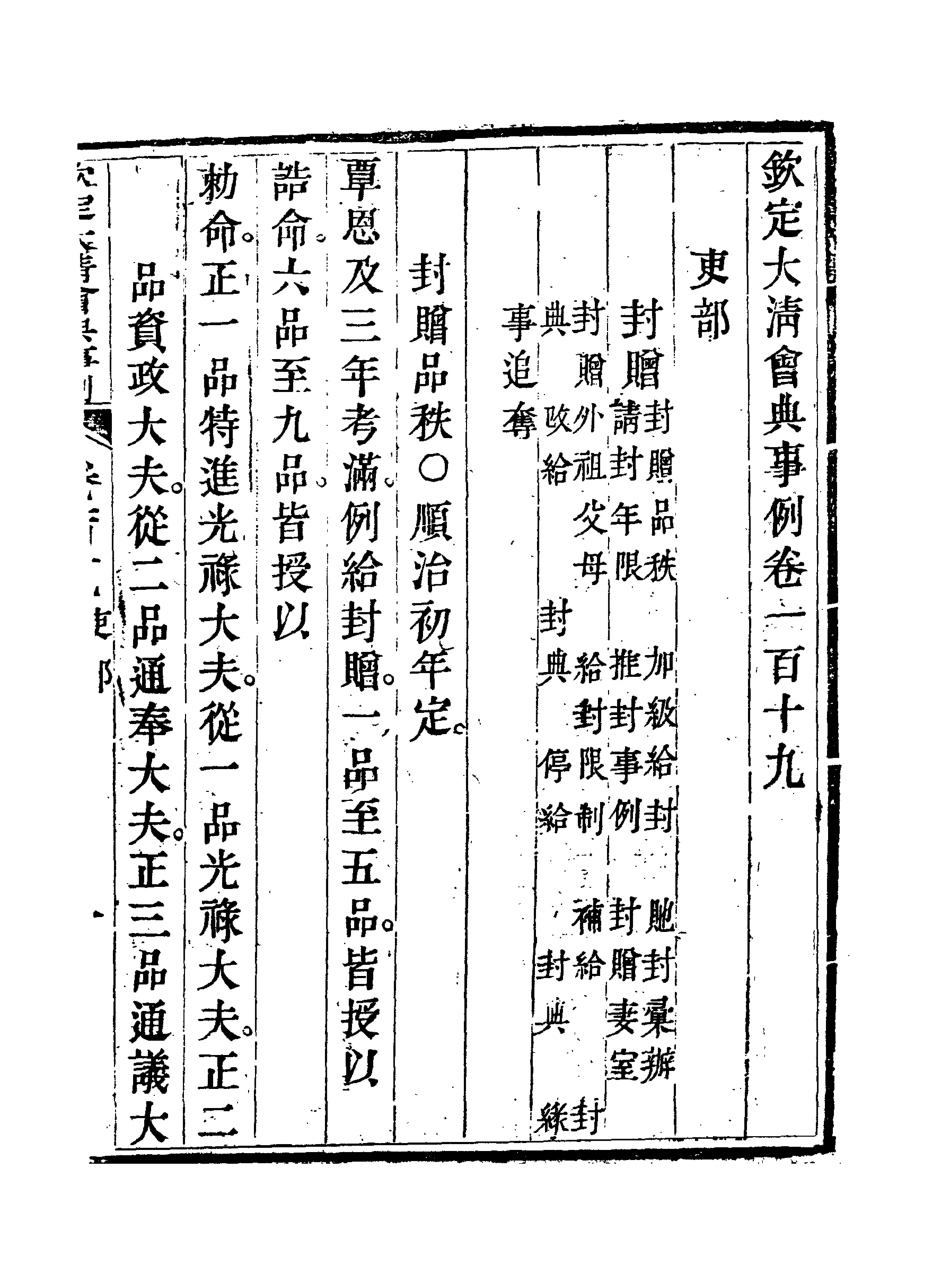 欽定大淸會典事例卷一百十九
吏部
封贈
封贈品秩　加級給封　貤封彙辦
請封年限　推封事例　封贈妻室
封贈外祖父母　給封限制　補給　封
典　改給　封典　停給　封典　緣
事追奪
封贈品秩○順治初年定。
覃恩及三年考滿。例給封贈。一品至五品。皆授以
誥命。六品至九品。皆授以
勅命。正一品特進光祿大夫。從一品光祿大夫。正二
品資政大夫。從二品通奉大夫。正三品通議大
吏部
一